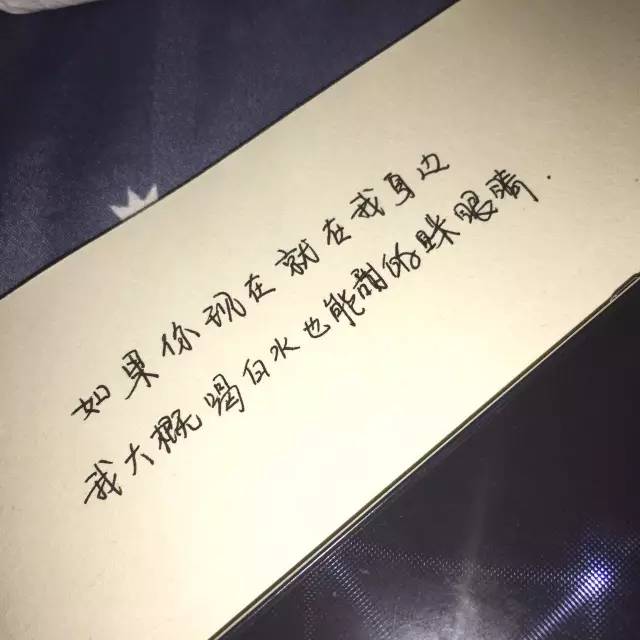 如果你现在就在我身边
我大概喝白水也能甜的眯眼睛.